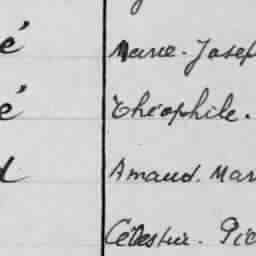 é Marie. Josep
é Théophile.
d Amand. Mar
Célestin. Pie